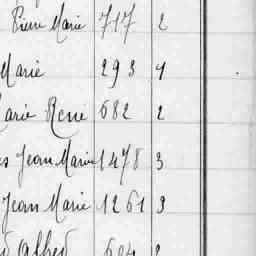 Pierre Marie 717 2
Marie 293 4
Marie René 682 2
Jean Marie 1478 3
Jean Marie 1261 3
Alfred 604